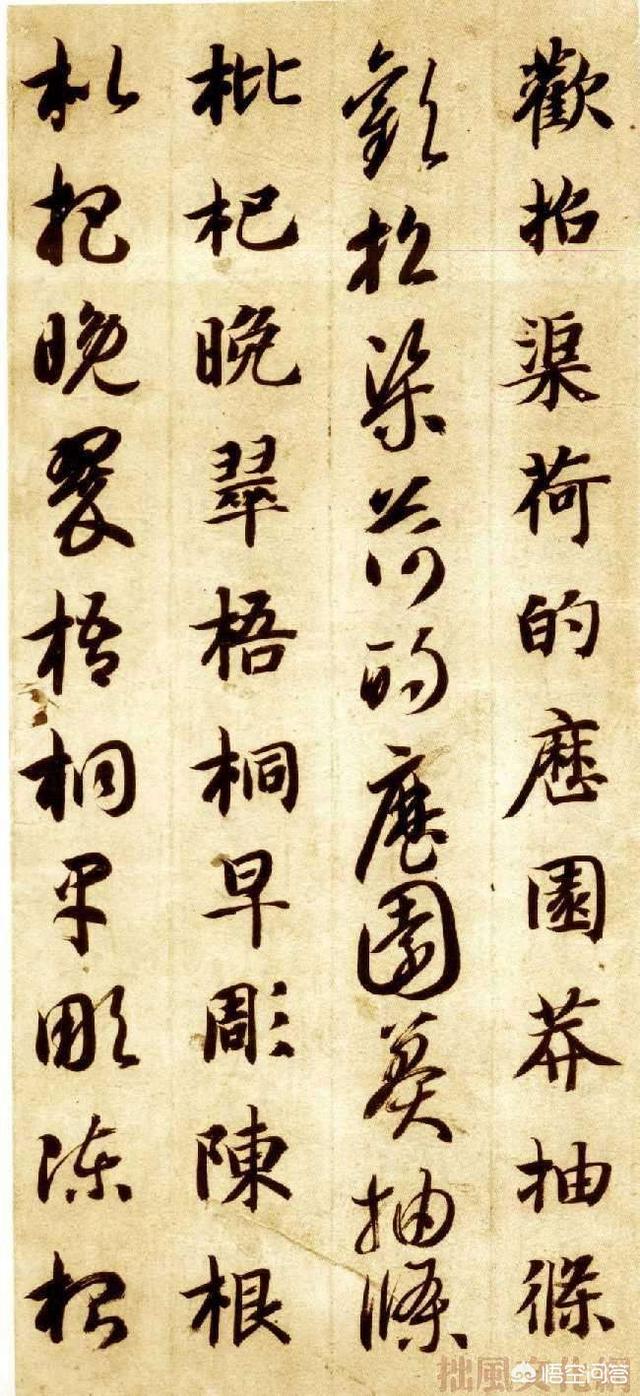 歡招渠荷的歷園莽抽條
歡招渠荷的歷園莽抽條
枇杷晚翠梧桐早彫陳根
枇杷晚翠梧桐早彫陳根
拙風文化網
悟空问答